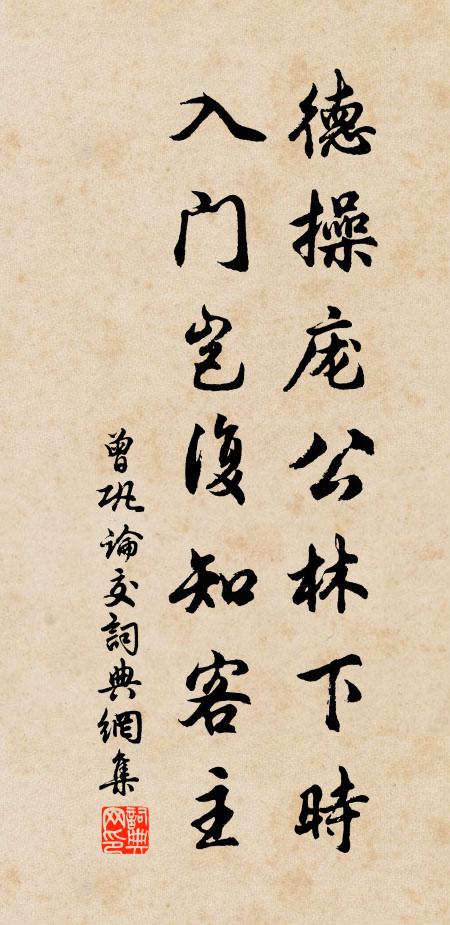 德操庞公林下時
入门岂復知客主
曾巩論交詞典網集
詞典网印